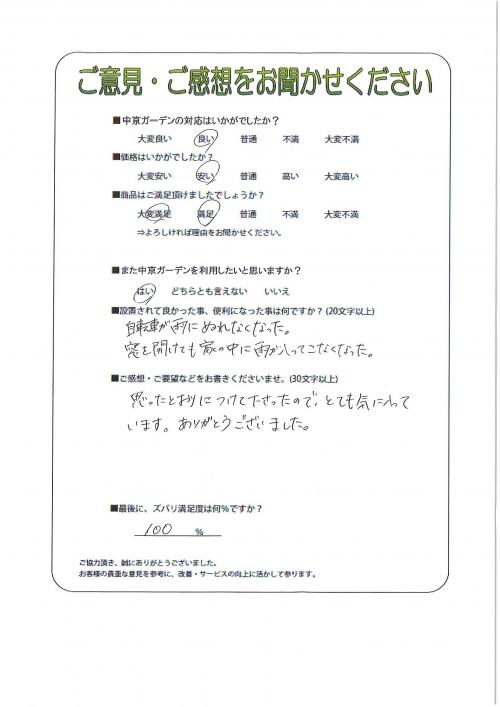 ご意見・ご感想をお聞かせください
■中京ガーデンの対応はいかがでしたか？
大変良い 良い 普通 不満 大変不満
■価格はいかがでしたか？
大変安い 安い 普通 高い 大変高い
■商品はご満足頂けましたでしょうか？
大変満足 満足 普通 不満 大変不満
⇒よろしければ理由をお聞かせください。
■また中京ガーデンを利用したいと思いますか？
はい どちらとも言えない いいえ
■設置されて良かった事、便利になった事は何ですか？(20文字以上)
自転車が雨にぬれなくなった。
窓を開けても家の中に雨が入ってこなくなった。
■ご感想・ご要望などをお書きくださいませ。(30文字以上)
思ったとおりにつけて下さったので、とても気に入って
います。ありがとうございました。
■最後に、ズバリ満足度は何％ですか？
100 ％
ご協力頂き、誠にありがとうございました。
お客様の貴重な意見を参考に、改善・サービスの向上に活かして参ります。